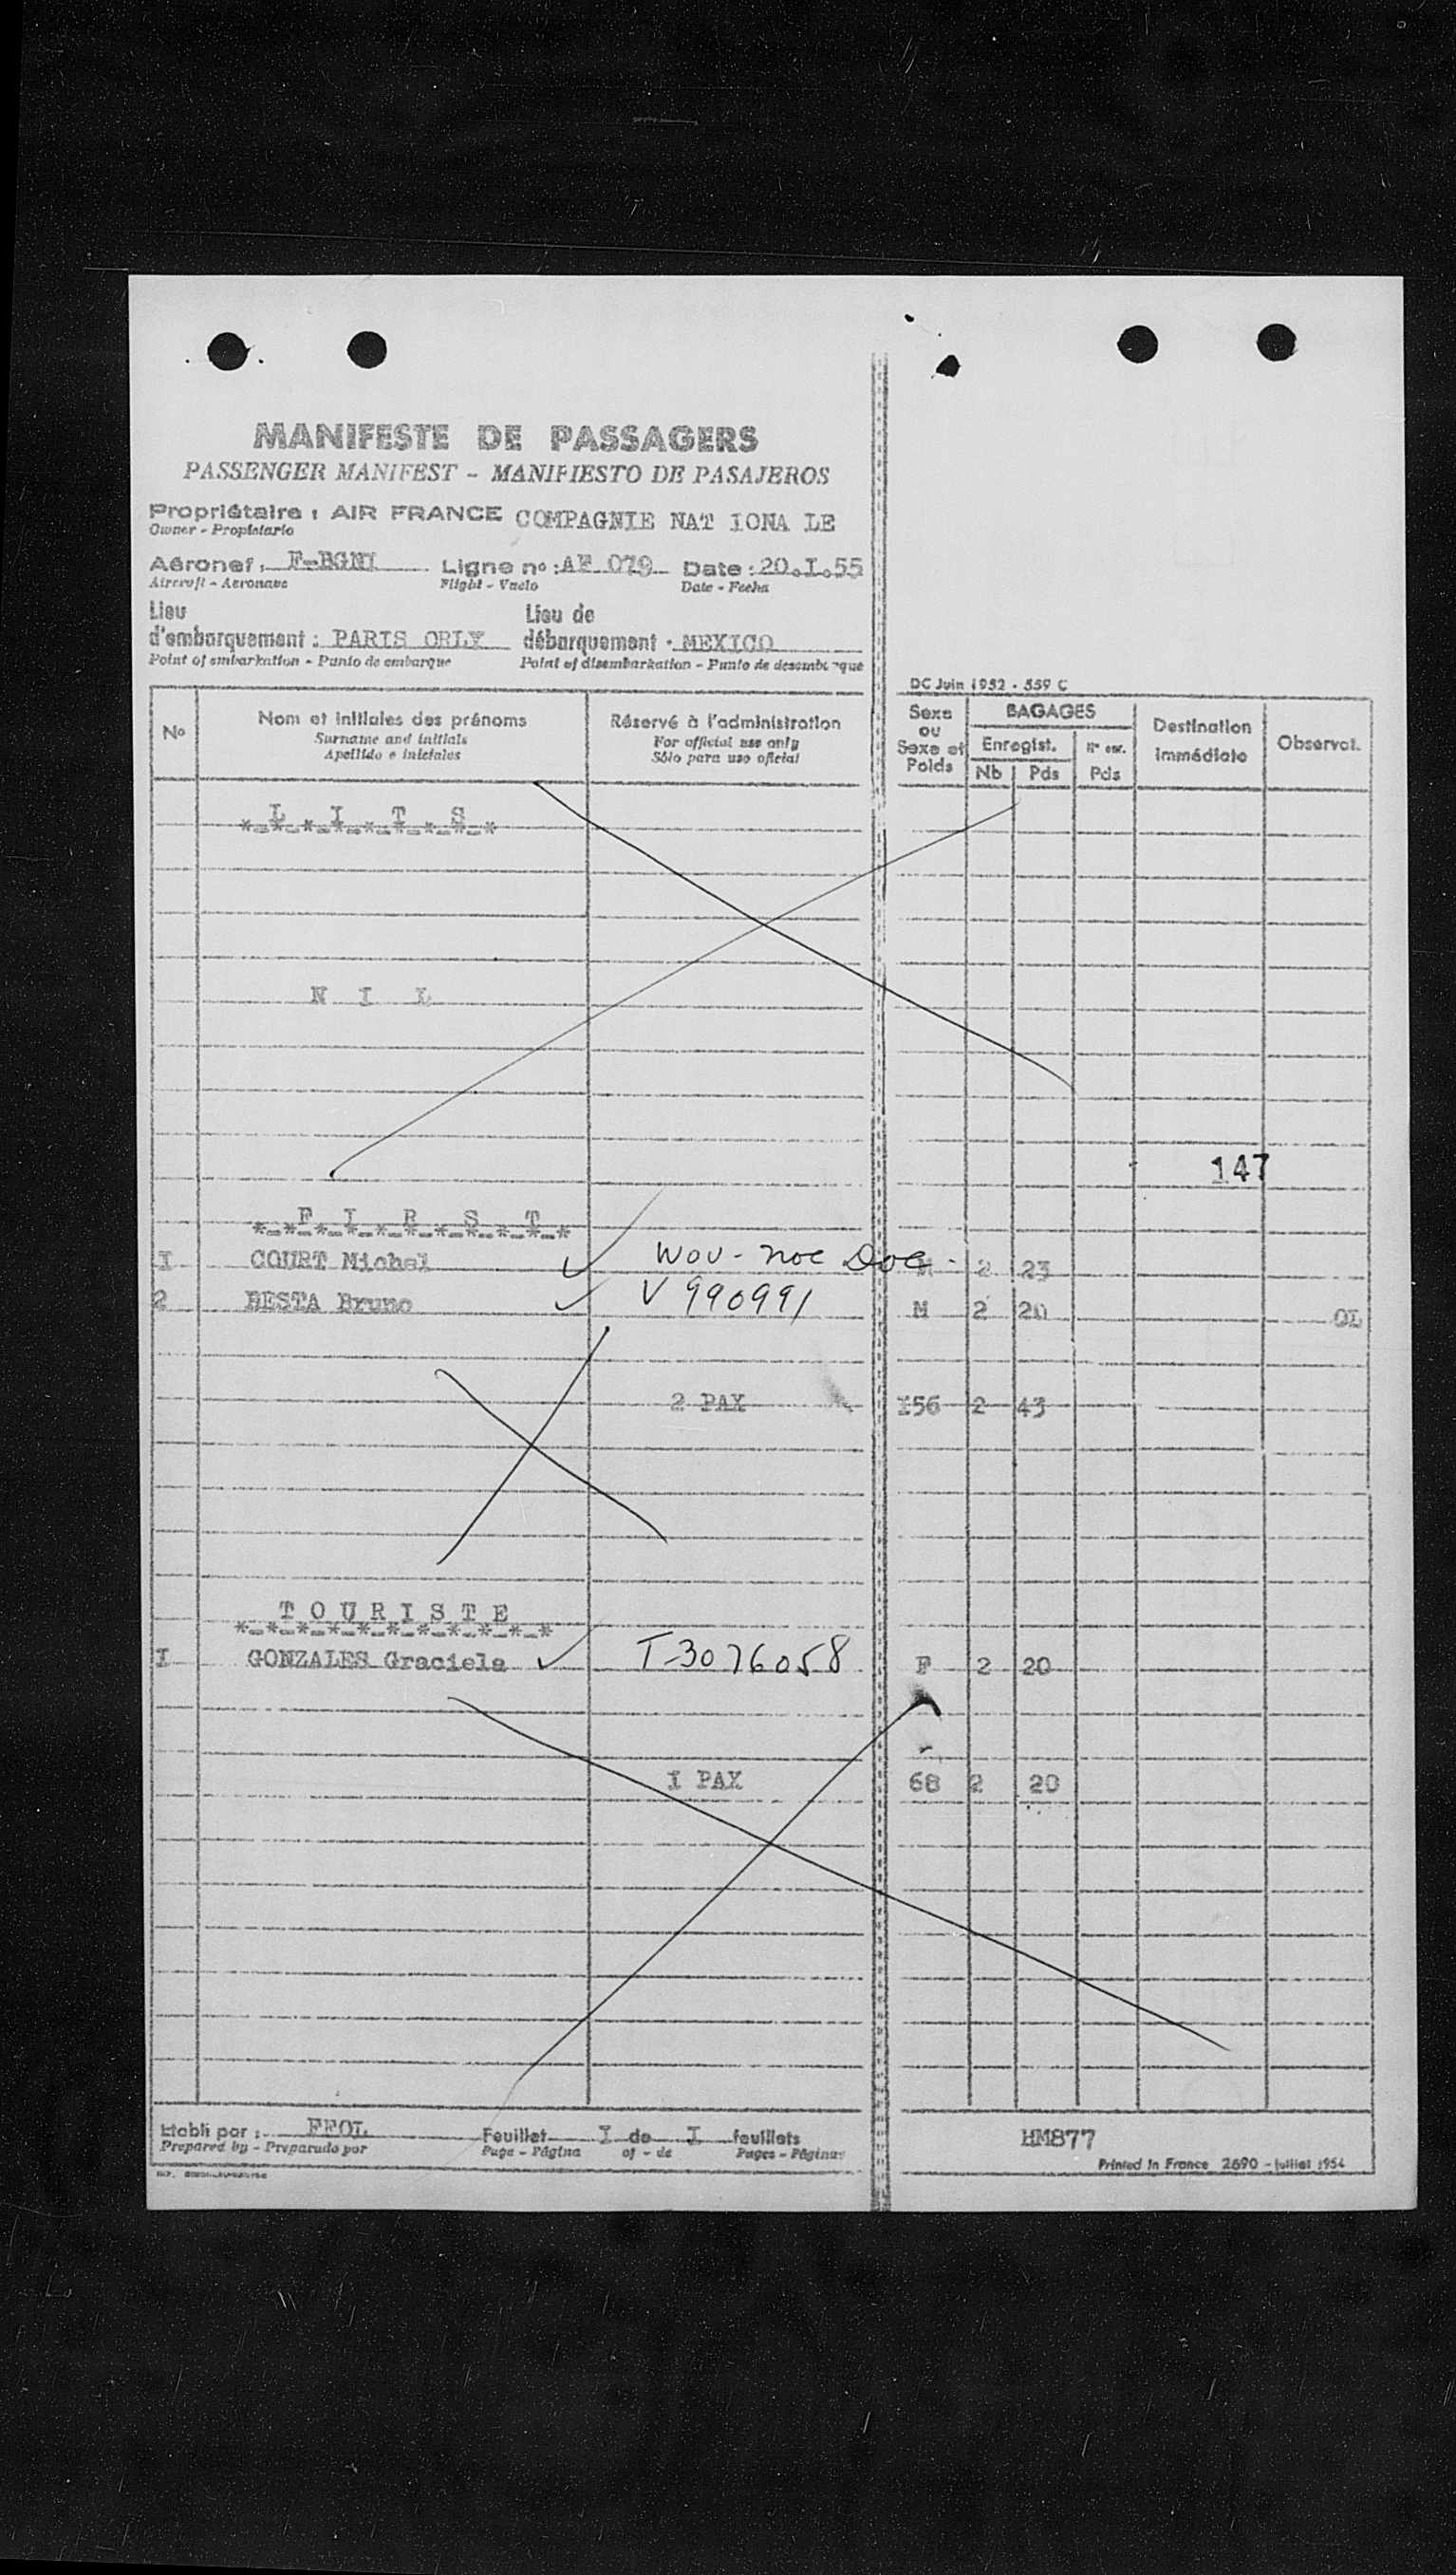 MANIFESTE DE PASSAGERS
PASSENGER MANIFEST - MANIFIESTO DE PASAJEROS
Propriétaire : AIR FRANCE COMPAGNIE NAT IONA LE
Owner - Propietario
Aéronef : F-BGNI Ligne no : AF 079 Date : 20.I.55
Aircraft - Aeronave Flight - Vuelo Date - Fecha
Lieu d'embarquement : PARIS ORLY Lieu de débarquement : MEXICO
Point of embarkation - Punto de embarque Point of disembarkation - Punto de desembarque
DC Juin 1952 - 559 C
No Nom et initiales des prénoms Réservé à l'administration Sexe ou Sexe et Poids BAGAGES Destination immédiate Observat.
Surname and initials For official use only Enregist.
Apellido e iniciales Sólo para uso oficial Nb Pds Pds
L I T S
N I L
147
F I R S T
I COURT Michel Wov - noc Doc - M 2 23
2 BESTA Bruno V 990991 M 2 20 OL
2 PAX 156 2 43
T O U R I S T E
I GONZALES Graciela T-3076058 F 2 20
I PAX 68 2 20
Etabli par : FFOL Feuillet I de I feuillets HM877
Prepared by - Preparado por Page - Página of - de Pages - Páginas
Printed in France 2690 - juillet 1954